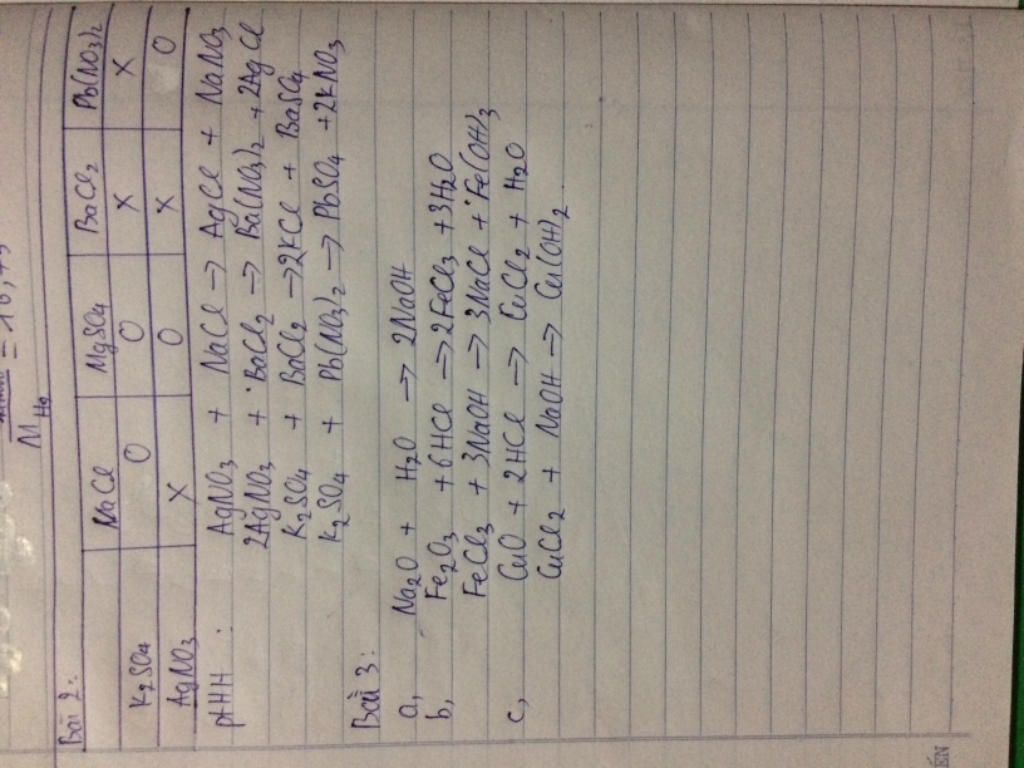 M H₂ = 16,75
Bài 2:
NaCl MgSO4 BaCl2 Pb(NO3)2
K2SO4 O O X X
AgNO3 X O X O
ptHH: AgNO3 + NaCl → AgCl + NaNO3
2AgNO3 + BaCl2 → Ba(NO3)2 + 2AgCl
K2SO4 + BaCl2 → 2KCl + BaSO4
K2SO4 + Pb(NO3)2 → PbSO4 + 2KNO3
Bài 3:
a, Na2O + H2O → 2NaOH
b, Fe2O3 + 6HCl → 2FeCl3 + 3H2O
FeCl3 + 3NaOH → 3NaCl + Fe(OH)3
c, CuO + 2HCl → CuCl2 + H2O
CuCl2 + NaOH → Cu(OH)2
ÉN